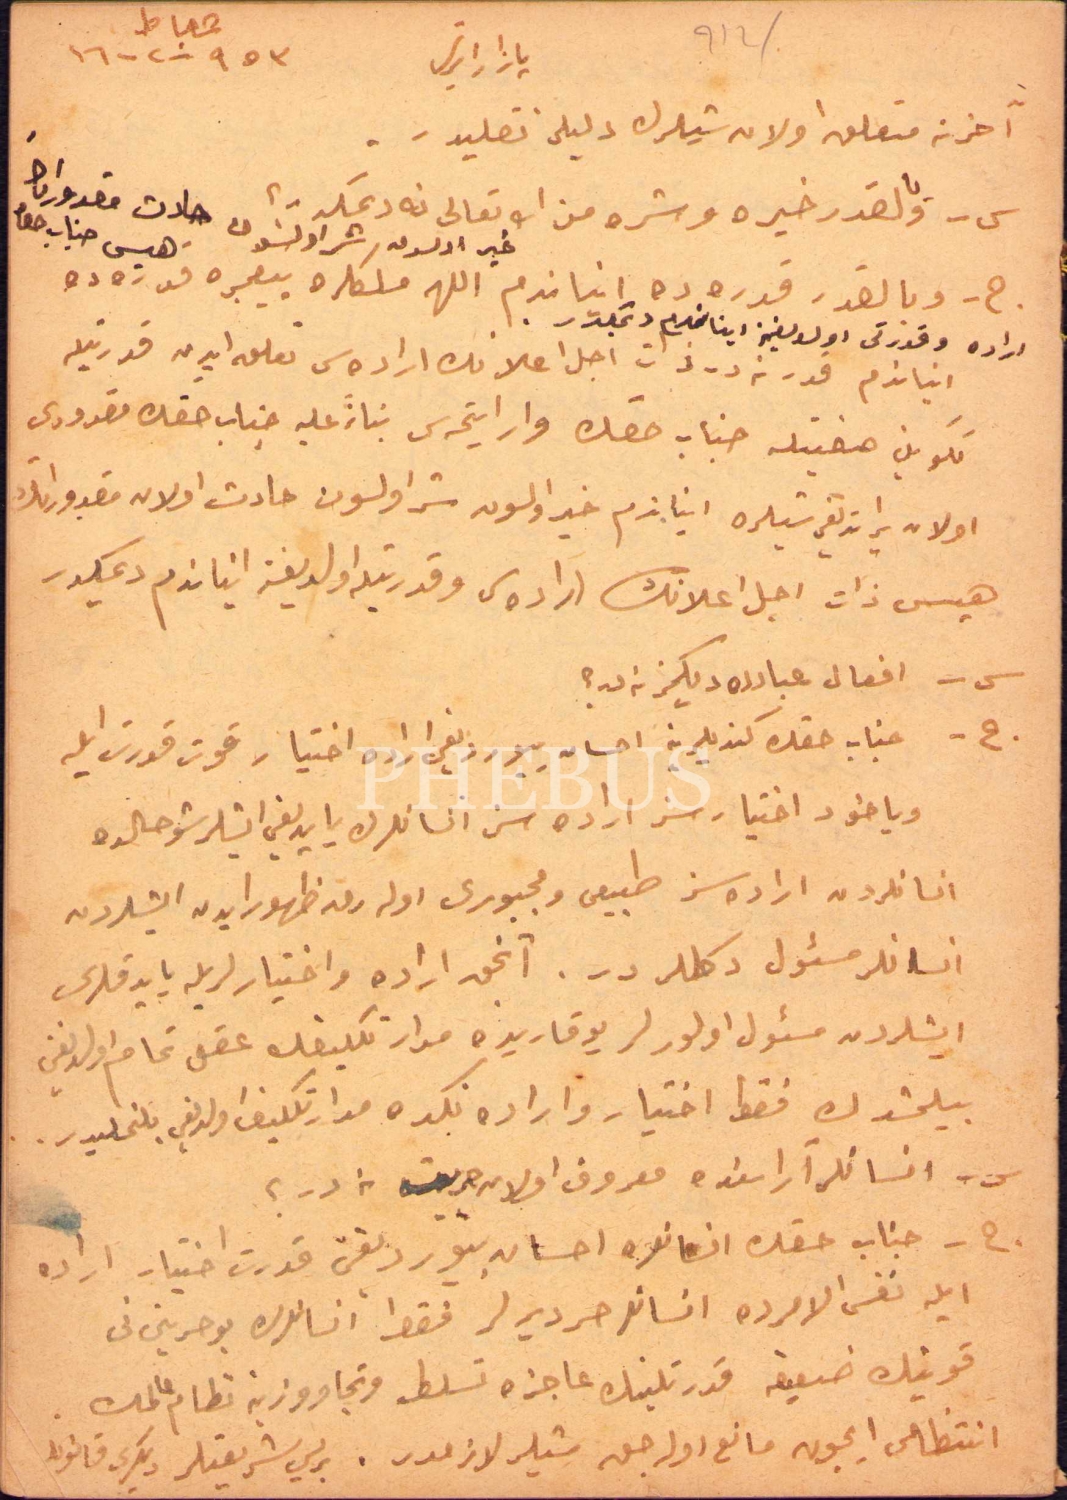 شباط
١٦-٢-٩٥٣
پازار ایرتسی
٩١٢/
آخرته متعلق اولان شیلرك دلیلی نقلیدر .
س - وبالقدر خیره وشره من الله تعالی نه دیمکدر؟
خیر اولسون شر اولسون حادث مقدوراتك
هپسی جناب حقك
ج - وبالقدر قدره ده ایناندم اللهه ملکلره پیغمبره
اراده وقدرتی اولدیغنه ایناندم دیمکدر .
ایناندم قدر نه در ذات اجل اعلانك اراده سی تعلق ایدن قدرتیله
تکوین صفتیله جناب حقك وار ایتمه سی بناءً علیه جناب حقك مقدوری
اولان یراتدیغی شیلره ایناندم خیر اولسون شر اولسون حادث اولان مقدوراتك
هپسی ذات اجل اعلانك اراده سی وقدرتیله اولدیغنه ایناندم دیمکدر
س - افعال عباد دیدیکمز نه در؟
ج - جناب حقك کندیلرینه احسان بیوردیغی اراده اختیار قوت قدرت ایله
PHEBUS
ویاخود اختیارسز اراده سز انسانلرك یاپدیغی ایشلر شو حالده
انسانلردن اراده سز طبیعی ومجبوری اوله رق ظهور ایدن ایشلردن
انسانلر مسئول دکللردر . آنجق اراده واختیارلریله یاپدقلری
ایشلردن مسئول اولورلر یوقاریده مدار تکلیفك عقل تمام اولدیغنی
بیلمشدك فقط اختیار واراده نكده مدار تکلیف اولدیغی بیلنملیدر .
س - انسانلر آراسنده معروف اولان حریت نه در؟
ج - جناب حقك انسانلره احسان بیوردیغی قدرت اختیار اراده
ایله نفس الامرده انسانلر حردیرلر فقط انسانلرك بو حریتنی
قوینك ضعیفه قدرتلینك عاجزه تسلط وتجاوزینه نظام عالمك
انتظامی ایچون مانع اوله جق شیلر لازمدر . بری شریعتلر دیکری قانون